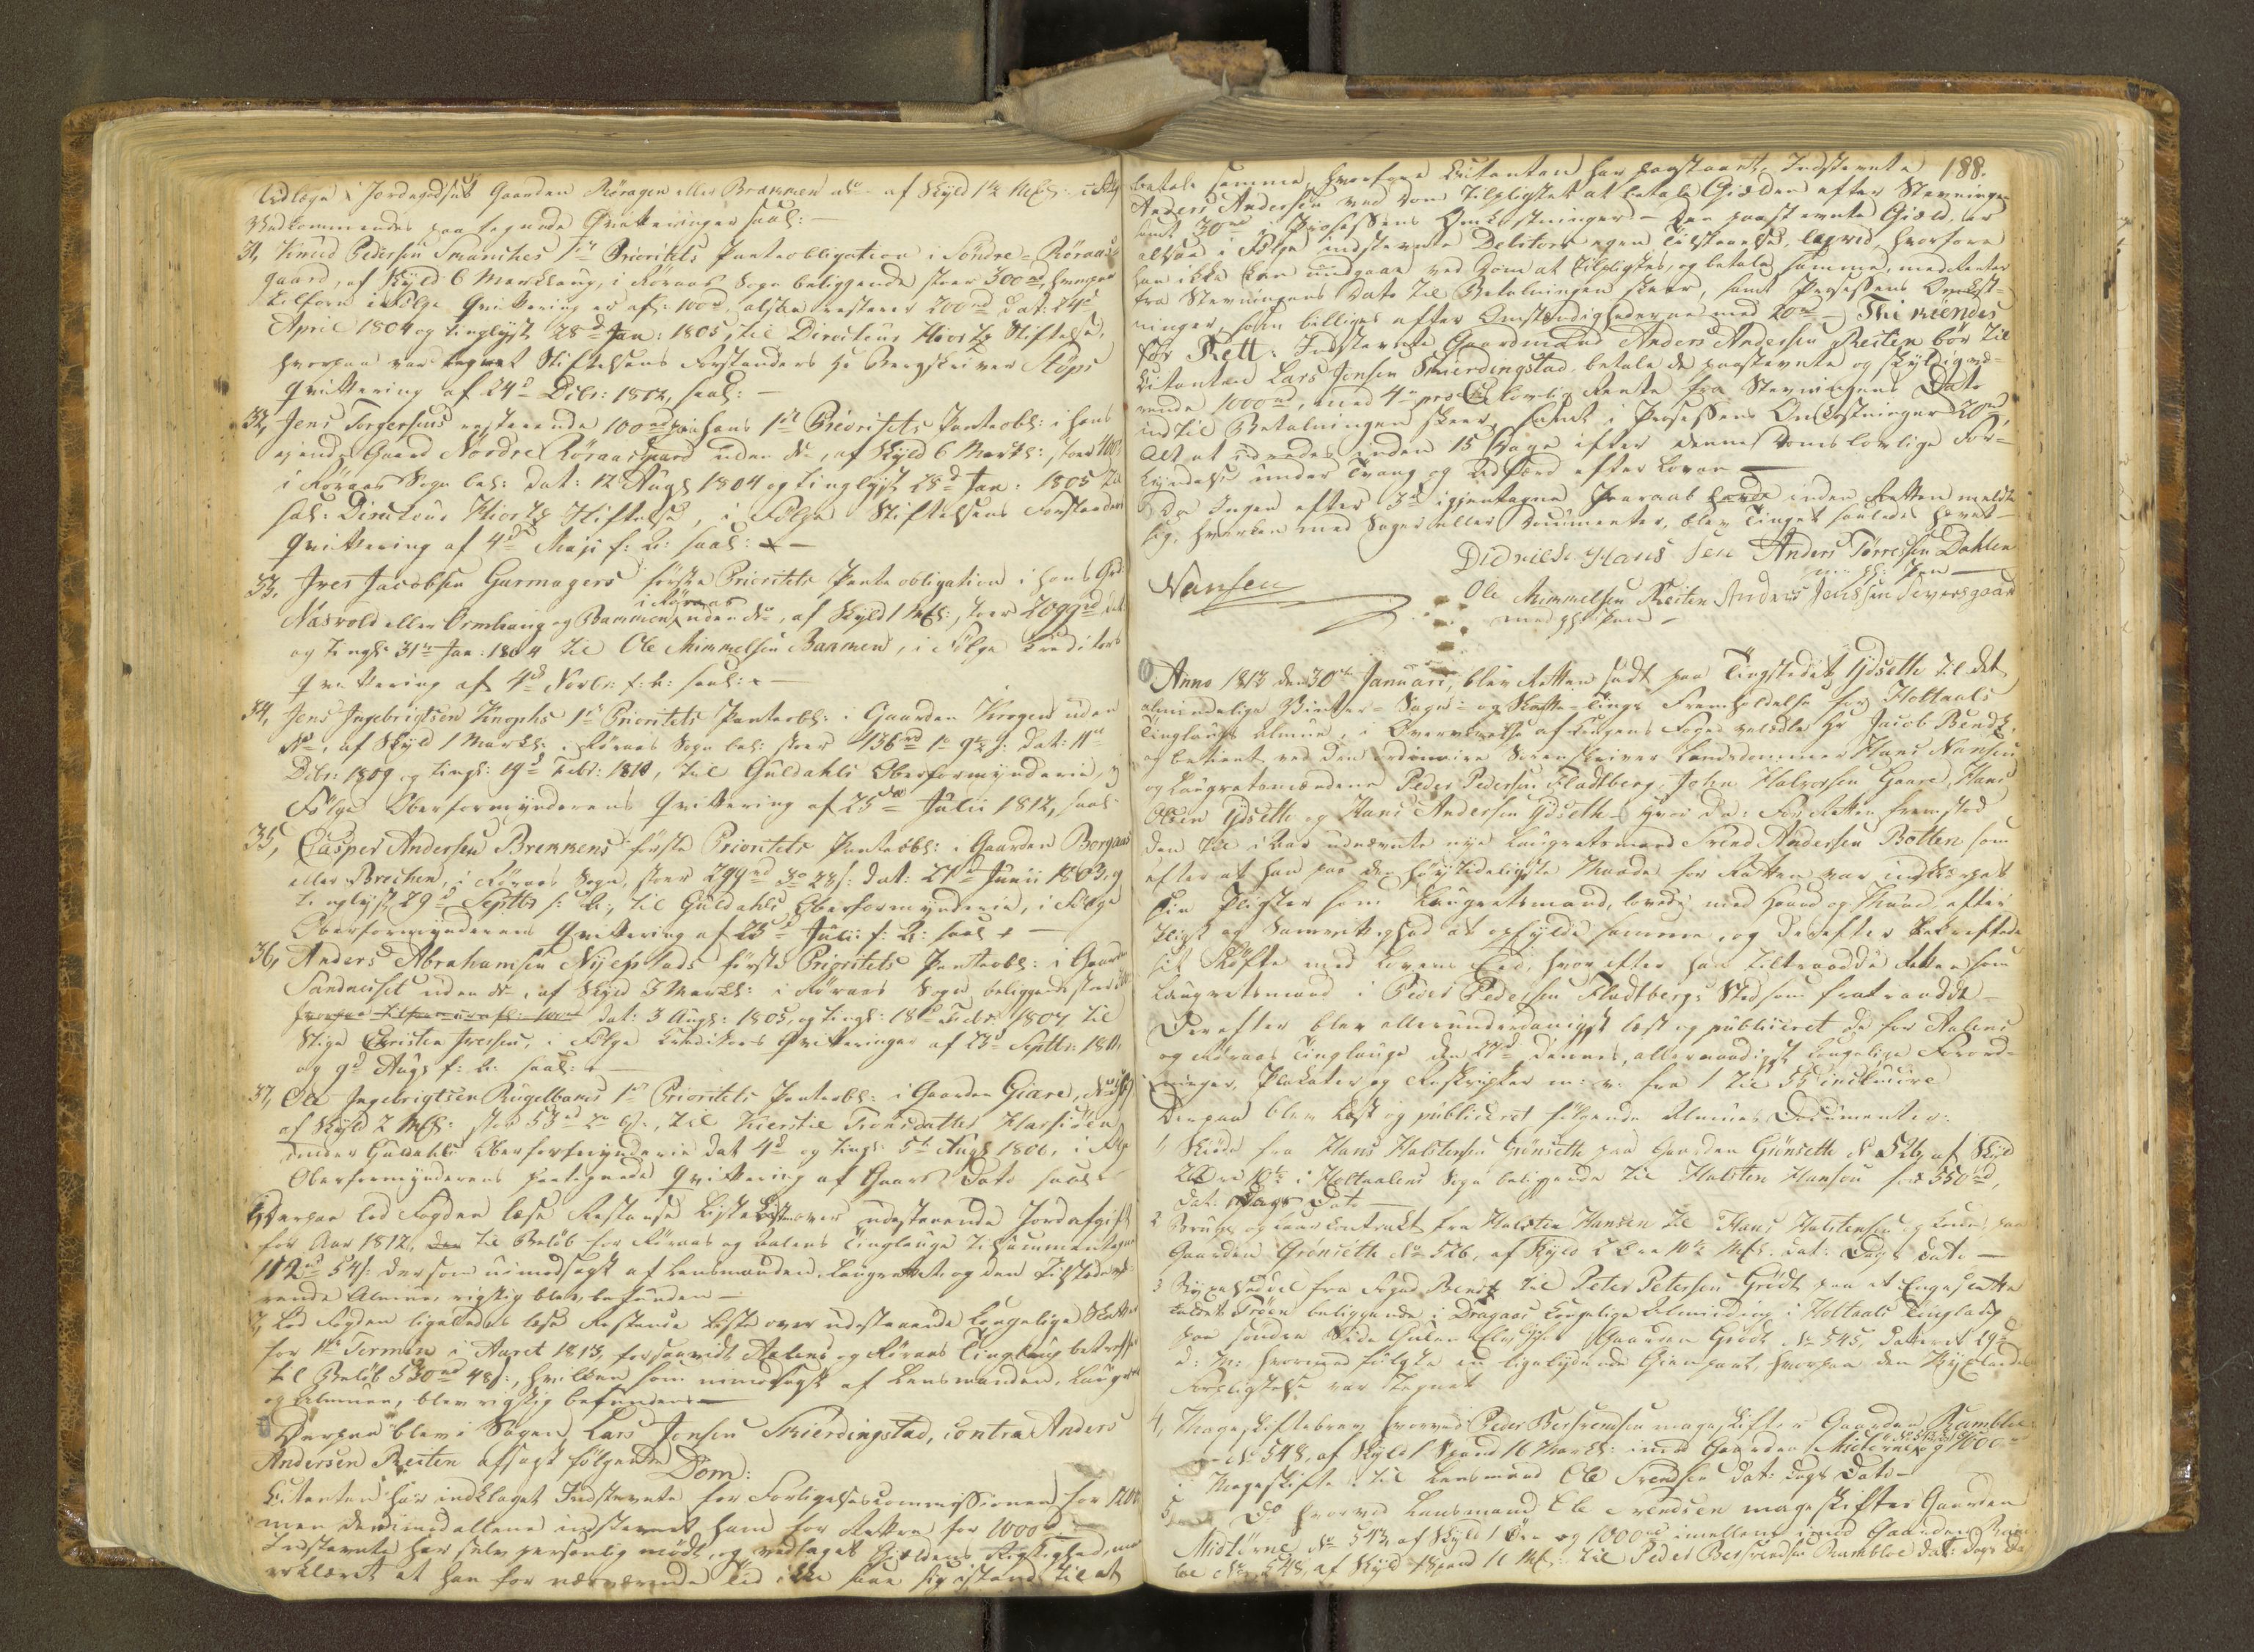 Udlæg i Jordegodset Gaarden Röragen eller Brammen af Skyld 1½ Mkl:
Vedkommendes paa tegnede Qvitteringer saal: —
31, Knud Pedersen Smaniches 1te Prioritets Panteobligation i Söndre-Röraas
gaard, af Skyld 6 Marklaug, i Röraas Sogn beliggende stoer 300 rd, hvorpaa
tilforn ifølge qvittering er afs: 100 rd, altsaa resterer 200 rd dat: 24d
April 1804 og tinglyst 28d Jan: 1805, til Directeur Hiorts Stiftelse,
hvorpaa var tegnet Stiftelsens Forstanders Hr Bergskriver Flöps
qvittering af 24d Decbr: 1812, saal: —
32, Jens Torgersens resterende 100 rd paa hans 1ste Prioritets Panteobl: i hans
ejende Gaard Nördre Röraasgaard uden No, af Skyld 6 Markl:, stoer 400
i Röraas Sogn bel: dat: 12 Augs 1804 og tinglyst 28d Jan: 1805 til
sal: Directeur Hiorts Stiftelse, i Følge Stiftelsens Forstanders
qvittering af 4d Maji f: A: saal: —
33, Iver Jacobsen Garmagers første Prioritets Pante obligation i hans Grd:
Nasvold eller Ormhaug og Bammen i Röraas uden No, af Skyld 1 Mkl:, stoer 2099 rd dat
og tingl: 31te Jan: 1804 til Ole Mimmelsen Banmen, i Følge Creditors
qvittering af 4d Novbr: f: A: saal: —
34, Jens Ingebrigtsen Knophs 1te Prioritets Panteobl: i Gaarden Krogen uden
No, af Skyld 1 Markl: i Röraas Sogn bel: stoer 436 rd 1 ort 9½ s: dat: 11te
Decbr: 1809 og tingl: 19d Febr: 1810, til Guldahls Oberformynderie, i
Følge Oberformynderens Qvittering af 25de Julii 1812, saal:
35, Casper Andersen Brekkens første Prioritets Panteobl: i Gaarden Borgaas
eller Brechen, i Röraas Sogn, stoer 299 rd 3 ort 23 s: dat: 27d Junii 1803, og
tinglyst 29d Septbr f: A:, til Guldahls Oberformynderie, i Følge
Oberformynderens Qvittering af 25d Julii f: A: saal: —
36, Anders Abrahamsen Nyeplads første Prioritets Panteobl: i Gaarden
Sandneset uden No, af Skyld 3 Markl: i Röraas Sogn beliggende stoer
dat: 3 Augs: 1805, og tingl: 18d Febr 1807 til
Stiger Christen Iversen, i Følge Creditors Qvitteringer af 23d Septbr: 1811,
og 9d Augs f: A: saal: —
37, Ole Ingebrigtsen Kugelbaans 1te Prioritets Panteobl: i Gaarden Giare,
af Skyld 2 Mkl: stoer 58 rd 2 ort 6 s:, til Kierstie Tronsdatter Harsiöen
under Guldahls Oberformynderie dat 4d og tingl: 5te Augs 1806, i Følge
Oberformynderens paategnede Qvittering af Gaars Dato saal:
Derpaa lod Fogden læse Restance Liste over udestaaende Jordafgift
for Aar 1812, til Beløb for Röraas og Aalens Tinglauge tilsammentagne
112 rd 54 s: der som uimodsagt af Lensmanden, Laugrettet og den tilstedevæ-
rende Almue, rigtig blev befunden —
2, Lod Fogden ligeledes læse Restance Liste over udestaaende Kongelige Skatter
for 1te Termin i Aaret 1813, forsaavidt Aalens og Röraas Tinglaug betreffer
til Beløb 530 rd 48 s:, hvilken som uimodsagt af Lensmanden, Laugret
og Almuen, blev rigtig befunden —
Derpaa blev i Sagen Lars Jonsen Skierdingstad, contra Anders
Andersen Reiten afsagt følgende
Dom:
Citanten har indklaget Indstevnte for Forligelsescommissionen for 1200
men derimod allene indstevnet ham for Retten for 1000 rd
Indstevnte har selv personlig mødt, og vedtaget Gieldens Rigtighed, men
erklæret at han for nærværende Tid ikke saae sig istand til at
188.
betale samme, hvorfore Citanten har paastaaet Indstevnte
Anders Andersen ved Dom tilpligtet at betale Gielden efter Stevningen
samt 30 rd i Processens Omkostninger — Den paastevnte Gield er
altsaa i Følge indstevnte Debitors egen Tilstaaelse, beviist, hvorfore
han ikke kan undgaae ved Dom at tilpligtes, og betale samme, med Renter
fra Stevningens Dato til Betalningen skeer, samt Processens Omkost-
ninger, som billiges efter Omstændighederne med 20 rd — Thi kiendes
for Rett: Indstevnte Gaardmand Anders Andersen Reiten bör til
Citanten Lars Jonsen Skierdingstad betale de paastevnte og skyldigvæ-
rende 1000 rd, med 4 pro Cto lovlig Rente fra Stevningens Dato
indtil Betalningen skeer, samt i Processens Omkostninger 20 rd,
alt at udredes inden 15 Dage efter denne Doms lovlige For-
kyndelse under Tvang og Udfærd efter Loven —
Da Ingen efter 3de igjentagne Paaraab havde inden Retten meldt
sig, hverken med Sager eller Documenter, blev Tinget saaledes hævet —
Nansen
Didrich Hans Sen Anders Törresen Dahlen
m: h: Pen
Ole Mimmelsen Reiten Anders Jenssen Sevorsgaard
med hh: Pen
Anno 1813 den 30te Januarii, blev Retten sadt paa Tingstedet Ydseth til det
almindelige Vinter- Sage- og Skatte-Tings Fremholdelse for Holtaals
Tinglaugs Almue, i Overværelse af Kongens Foged velædle Hr Jacob Bendz,
og betient ved den ordinaire Sorenskriver Landsdommer Hans Nansen
og Laugrettesmændene Peder Pedersen Fladtberg, John Halvorsen Gaare, Hans
Olsen Ydseth og Hans Andersen Ydseth — Hvor da: For Retten fremstod
den til i Aar udnævnte nye Laugretsmand Svend Andersen Botten som
efter at han paa den höytideligste Maade for Retten var indskjerpet
sin Pligter som Laugretsmand, lovede med Haand og Mund efter
Pligt og Samvittighed at opfylde samme, og derefter bekreftede
sit Løfte med Lovens Eed, hvorefter han tiltraadde Retten som
Laugretsmand i Peder Pedersen Fladtbergs Sted som fratraadde —
Derefter blev allerunderdanigst læst og publiceret de for Aalens
og Röraas Tinglauge den 27d dennes, allernaadigst Kongelige Forord-
ninger, Plakater og Reskripter m: v: fra 1 til 55 inclusive
Derpaa blev læst og publiceret følgende Almues Documenter:
1, Skiøde fra Hans Halstensen Grönseth paa Gaarden Grönseth No 526 af Skyld
2 Öre 10½ i Holtaalens Sogn beliggende til Halsten Hansen for 550 rd,
dat: Dags Dato —
2 Brugs og Laar Contract fra Halsten Hansen til Hans Halstensen og Kone, paa
Gaarden Grönseth No 526, af Skyld 2 Öre 10½ Mkl. dat: Dags Dato —
3 Byxelseddel fra Foged Bendz til Peter Petersen Grödt paa et Engeslette
kaldet Tröen beliggende i Dragaas Kongelige Almindning i Holtaals Tinglaug
paa söndre Side Gulen Elv, Gaarden Grödt No 545, dateret 29d
d: M: hvormed fulgte en ligelydende Gienpart, hvorpaa den Byxlendes
Forpligtelse var tegnet
4, Mageskiftebrev hvorved Peder Bersvendsen mageskifter Gaarden Rambloe
No 548, af Skyld 1 Spand 16 Markl: imod Gaarden Midtörne og 1000 rd
i Mageskifte til Lensmand Ole Svendsen dat: Dags Dato —
5 Do hvorved Lensmand Ole Svendsen mageskifter Gaarden
Midtörne No 543 af Skyld 1 Öre og 1000 rd imellem imod Gaarden Ram-
bloe No 548, af Skyld 1 Spand 16 Mkl: til Peder Bersvendsen Rambloe dat: Dags Da